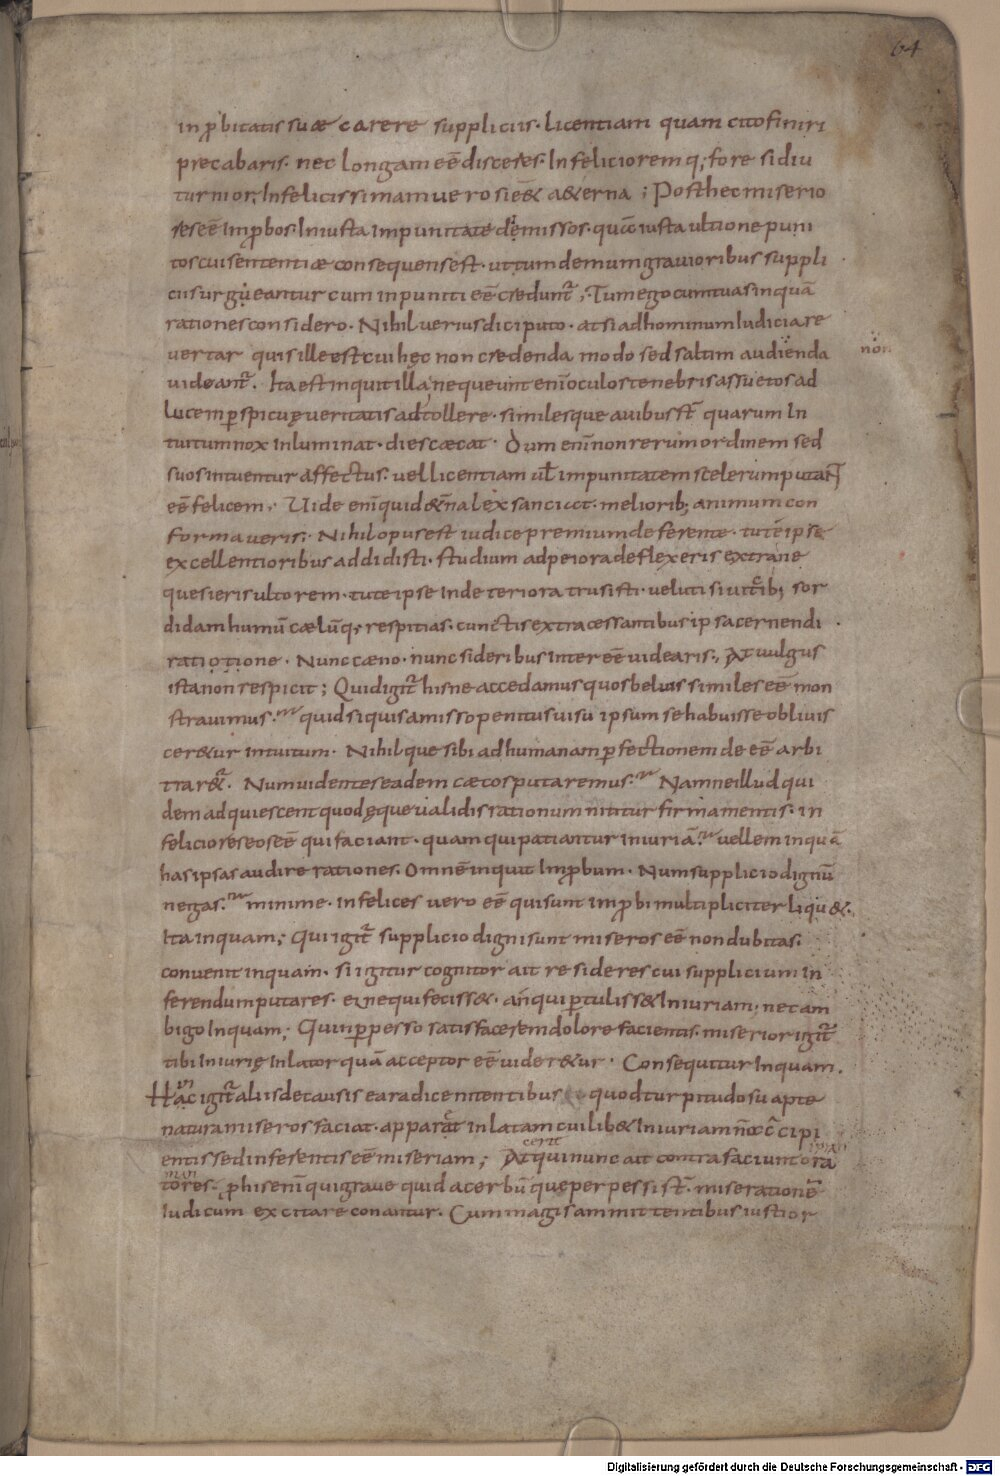 64
inp̱bitatis suæ carere suppliciis· licentiam quam cito finiri
precabaris· nec longam eē disceres· Infeliciorem q; fore si diu
turnior; Infelicissimam uero si eēt & a&erna; Post hec miserio
res eē imp̱bos· Iniusta impunitate demissos· quā iusta ultione puni
tos cui sententiæ consequens est· ut tum demum grauioribus suppli
ciis urgueantur cum inpuniti eē credunt̄; Tum ego cum tuas inquā
rationes considero· Nihil uerius dici puto· at si ad hominum Iudicia re
uertar quis ille est cui hęc non credenda modo sed saltim audienda
non
uideant̄· Ita est inquit illa, nequeunt enī oculos tenebris assuetos ad
Lucem p̱spicuę ueritatis adtollere· similesque auibus sт̄ quarum In
tuitum nox Inluminat· dies cæcat· Dum enī non rerum ordinem sed
suos intuentur affectus· uel licentiam uł impunitatem scelerum putant
eē felicem; Uide enī quid &ñna lex sanciat· meliorib; animum con
formaueris; Nihil opus est iudice premium deferente· tutē ipse
excellentioribus addidisti· studium ad peiora deflexeris extrane
quesieris ultorem· tute ipse In deteriora trusisti· ueluti si uicib; sor
didam humū cælūq; respicias· cunctis extra cessantibus ipsa cernendi
ratiotione· Nunc cæno· nunc sideribus Inter eē uidearis; At uulgus
ista non respicit; Quid igit̄ hisne accedamus quos beluis similes eē mon
strauimus· quid si quis amisso penitus uisu ipsum se habuisse obliuis
cer&ur intuitum· Nihilque sibi ad humanam p̱fectionem deeē arbi
trar&̄· Num uidentes eadem cæcos putaremus· Nam ne illud qui
dem adquiescent quod ęque ualidis rationum nititur firmamentis· in
feliciores eos eē qui faciant· quam qui patiantur iniuriā· uellem inquā
has ipsas audire rationes· Omnē inquit Imp̱bum· Num supplicio dignū
negas· minime· infelices uero eē qui sunt imp̱bi multipliciter liqu&·
Ita inquam; Qui igit̄ supplicio digni sunt miseros eē non dubitas·
conuenit inquam· si igitur cognitor ait resideres cui supplicium in
ferendum putares· eine qui feciss&· an̄ qui p̱tuliss& Iniuriam; nec am
bigo Inquam; Quin p̱pesso satisfacerem dolore facientis· miserior igit̄
tibi Iniurię Inlator quā acceptor eē uider&ur· Consequitur Inquam·
Hac igit̄ aliis de causis ea radice nitentibus quod turpitudo suapte
natura miseros faciat· apparet inlatam cuilib& Iniuriam n̄ accipi
entis sed inferentis eē miseriam; Atqui nunc ait contra faciunt ora
tores· p̱ his enī qui graue quid acerbū queperpessi sт̄· miserationē
Iudicum excitare conantur· Cum magis ammittentibus iustior
Digitalisierung gefördert durch die Deutsche Forschungsgemeinschaft · DFG